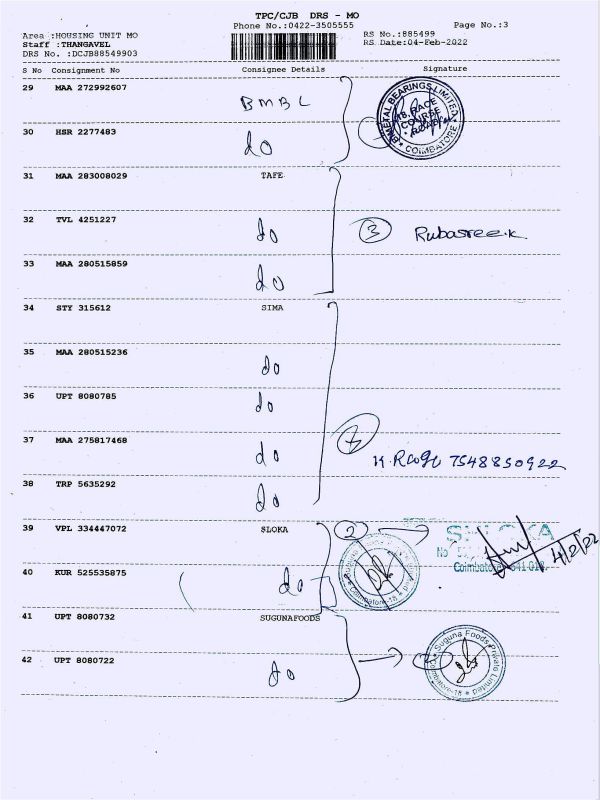 TPC/CJB DRS - MO
Phone No.:0422-3505555
Page No.:3
Area :HOUSING UNIT MO
Staff :THANGAVEL
DRS No. :DCJB88549903
RS No.:885499
RS Date:04-Feb-2022
S No Consignment No Consignee Details Signature
29 MAA 272992607 BMBL
30 HSR 2277483 do
BIMETAL BEARINGS LIMITED
18, RACE COURSE ROAD
COIMBATORE
31 MAA 283008029 TAFE
32 TVL 4251227 do 3 Rubasree.k.
33 MAA 280515859 do
34 STY 315612 SIMA
35 MAA 280515236 do
36 UPT 8080785 do
37 MAA 275817468 do
7548850922
38 TRP 5635292 do
39 VPL 334447072 SLOKA 2
Coimbatore 641 018.
4/2/22
40 KUR 525535875 do
Coimbatore-18
41 UPT 8080732 SUGUNAFOODS
42 UPT 8080722 do 2
Suguna Foods Private Limited
Coimbatore-18